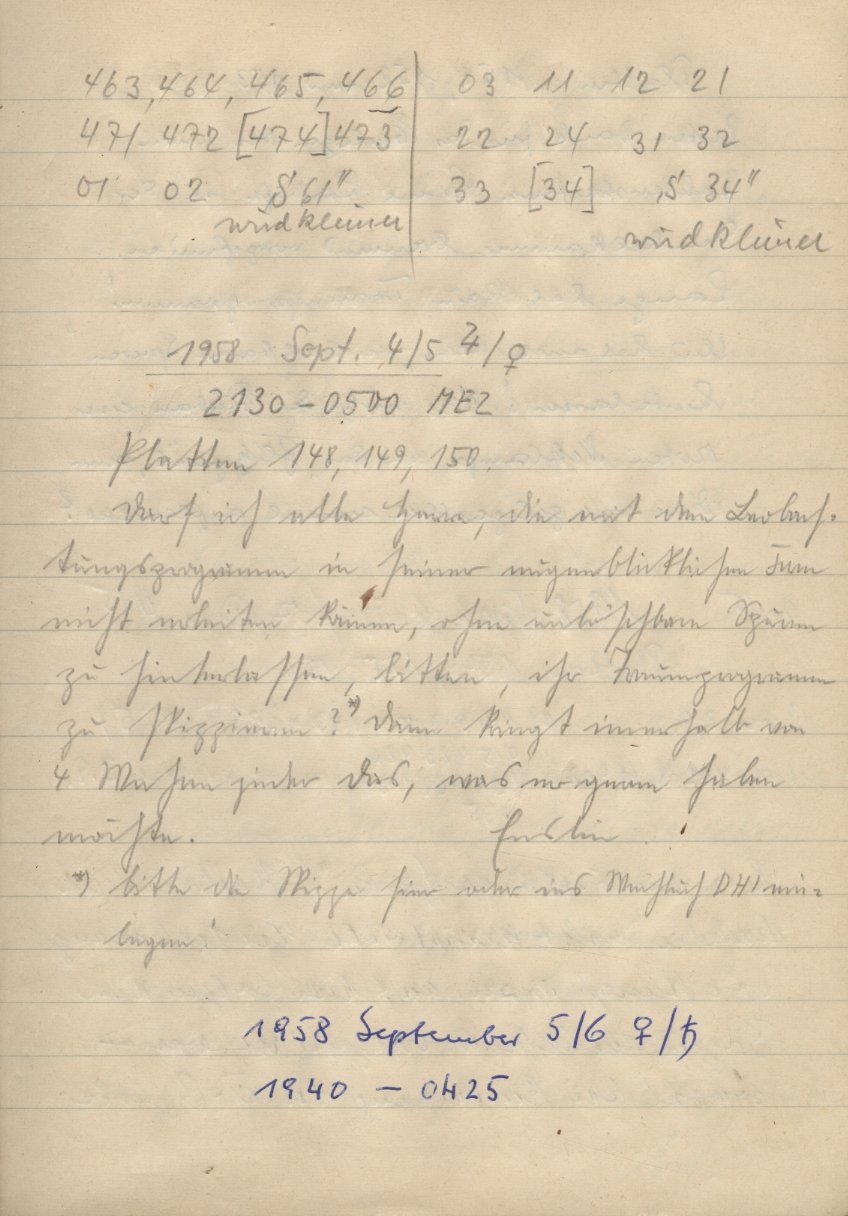 463, 464, 465, 466 | 03 11 12 21
471 472 [474] 473 | 22 24 31 32
01 02 S 61" | 33 [34] S 34"
wird kleiner | wird kleiner
1958 Sept. 4/5 ♃/♀
2130 – 0500 MEZ
Platten 148, 149, 150.
Darf ich alle Herren, die mit dem Beobach-
tungsprogramm in seiner augenblicklichen Form
nicht arbeiten können, ohne unlöschbare Spuren
zu hinterlassen, bitten, ihr Traumprogramm
zu skizzieren?*) Dann kriegt innerhalb von
4 Wochen jeder das, was er gerne haben
möchte. Enslin
*) bitte die Skizze hier oder ins Wachbuch DHI ein-
legen!
1958 September 5/6 ♀/♄
1940 – 0425